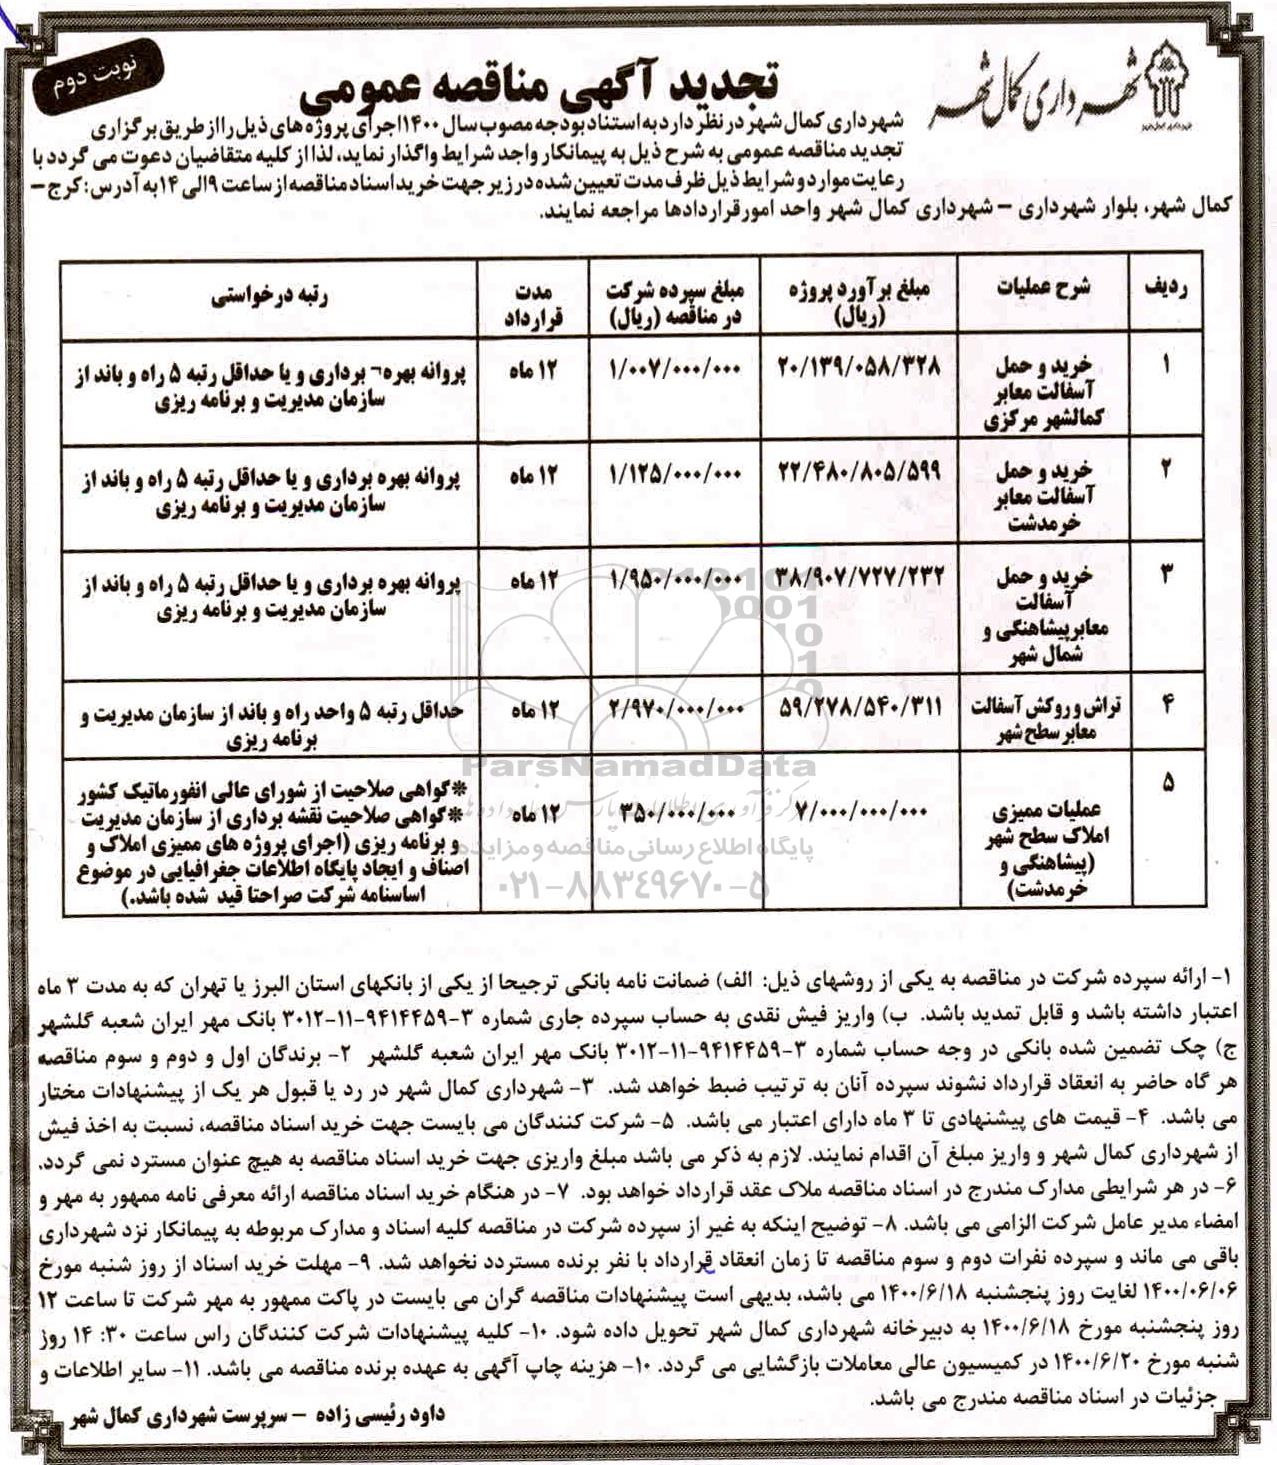 شهرداری کمال شهر
نوبت دوم
تجدید آگهی مناقصه عمومی
شهرداری کمال شهر در نظر دارد به استناد بودجه مصوب سال ۱۴۰۰ اجرای پروژه های ذیل را از طریق برگزاری
تجدید مناقصه عمومی به شرح ذیل به پیمانکار واجد شرایط واگذار نماید، لذا از کلیه متقاضیان دعوت می گردد با
رعایت موارد و شرایط ذیل ظرف مدت تعیین شده در زیر جهت خرید اسناد مناقصه از ساعت ۹ الی ۱۴ به آدرس: کرج –
کمال شهر، بلوار شهرداری – شهرداری کمال شهر واحد امور قراردادها مراجعه نمایند.
ردیف شرح عملیات مبلغ برآورد پروژه (ریال) مبلغ سپرده شرکت در مناقصه (ریال) مدت قرارداد رتبه درخواستی
۱ خرید و حمل آسفالت معابر کمالشهر مرکزی ۲۰/۱۳۹/۰۵۸/۳۲۸ ۱/۰۰۷/۰۰۰/۰۰۰ ۱۲ ماه پروانه بهره¬ برداری و یا حداقل رتبه ۵ راه و باند از سازمان مدیریت و برنامه ریزی
۲ خرید و حمل آسفالت معابر خرمدشت ۲۲/۴۸۰/۸۰۵/۵۹۹ ۱/۱۲۵/۰۰۰/۰۰۰ ۱۲ ماه پروانه بهره برداری و یا حداقل رتبه ۵ راه و باند از سازمان مدیریت و برنامه ریزی
۳ خرید و حمل آسفالت معابر پیشاهنگی و شمال شهر ۳۸/۹۰۷/۷۲۷/۲۳۲ ۱/۹۵۰/۰۰۰/۰۰۰ ۱۲ ماه پروانه بهره برداری و یا حداقل رتبه ۵ راه و باند از سازمان مدیریت و برنامه ریزی
۴ تراش و روکش آسفالت معابر سطح شهر ۵۹/۲۷۸/۵۴۰/۳۱۱ ۲/۹۷۰/۰۰۰/۰۰۰ ۱۲ ماه حداقل رتبه ۵ واحد راه و باند از سازمان مدیریت و برنامه ریزی
۵ عملیات ممیزی املاک سطح شهر (پیشاهنگی و خرمدشت) ۷/۰۰۰/۰۰۰/۰۰۰ ۳۵۰/۰۰۰/۰۰۰ ۱۲ ماه *گواهی صلاحیت از شورای عالی انفورماتیک کشور *گواهی صلاحیت نقشه برداری از سازمان مدیریت و برنامه ریزی (اجرای پروژه های ممیزی املاک و اصناف و ایجاد پایگاه اطلاعات جغرافیایی در موضوع اساسنامه شرکت صراحتا قید شده باشد.)
ParsNamadData
پایگاه اطلاع رسانی مناقصه و مزایده
۰۲۱-۸۸۳۴۹۶۷۰-۵
۱- ارائه سپرده شرکت در مناقصه به یکی از روشهای ذیل: الف) ضمانت نامه بانکی ترجیحا از یکی از بانکهای استان البرز یا تهران که به مدت ۳ ماه
اعتبار داشته باشد و قابل تمدید باشد. ب) واریز فیش نقدی به حساب سپرده جاری شماره ۳-۹۴۱۴۴۵۹-۱۱-۳۰۱۲ بانک مهر ایران شعبه گلشهر
ج) چک تضمین شده بانکی در وجه حساب شماره ۳-۹۴۱۴۴۵۹-۱۱-۳۰۱۲ بانک مهر ایران شعبه گلشهر ۲- برندگان اول و دوم و سوم مناقصه
هر گاه حاضر به انعقاد قرارداد نشوند سپرده آنان به ترتیب ضبط خواهد شد. ۳- شهرداری کمال شهر در رد یا قبول هر یک از پیشنهادات مختار
می باشد. ۴- قیمت های پیشنهادی تا ۳ ماه دارای اعتبار می باشد. ۵- شرکت کنندگان می بایست جهت خرید اسناد مناقصه، نسبت به اخذ فیش
از شهرداری کمال شهر و واریز مبلغ آن اقدام نمایند. لازم به ذکر می باشد مبلغ واریزی جهت خرید اسناد مناقصه به هیچ عنوان مسترد نمی گردد.
۶- در هر شرایطی مدارک مندرج در اسناد مناقصه ملاک عقد قرارداد خواهد بود. ۷- در هنگام خرید اسناد مناقصه ارائه معرفی نامه ممهور به مهر و
امضاء مدیر عامل شرکت الزامی می باشد. ۸- توضیح اینکه به غیر از سپرده شرکت در مناقصه کلیه اسناد و مدارک مربوطه به پیمانکار نزد شهرداری
باقی می ماند و سپرده نفرات دوم و سوم مناقصه تا زمان انعقاد قرارداد با نفر برنده مستردد نخواهد شد. ۹- مهلت خرید اسناد از روز شنبه مورخ
۱۴۰۰/۰۶/۰۶ لغایت روز پنجشنبه ۱۴۰۰/۶/۱۸ می باشد، بدیهی است پیشنهادات مناقصه گران می بایست در پاکت ممهور به مهر شرکت تا ساعت ۱۲
روز پنجشنبه مورخ ۱۴۰۰/۶/۱۸ به دبیرخانه شهرداری کمال شهر تحویل داده شود. ۱۰- کلیه پیشنهادات شرکت کنندگان راس ساعت ۱۴:۳۰ روز
شنبه مورخ ۱۴۰۰/۶/۲۰ در کمیسیون عالی معاملات بازگشایی می گردد. ۱۰- هزینه چاپ آگهی به عهده برنده مناقصه می باشد. ۱۱- سایر اطلاعات و
جزئیات در اسناد مناقصه مندرج می باشد.
داود رئیسی زاده – سرپرست شهرداری کمال شهر